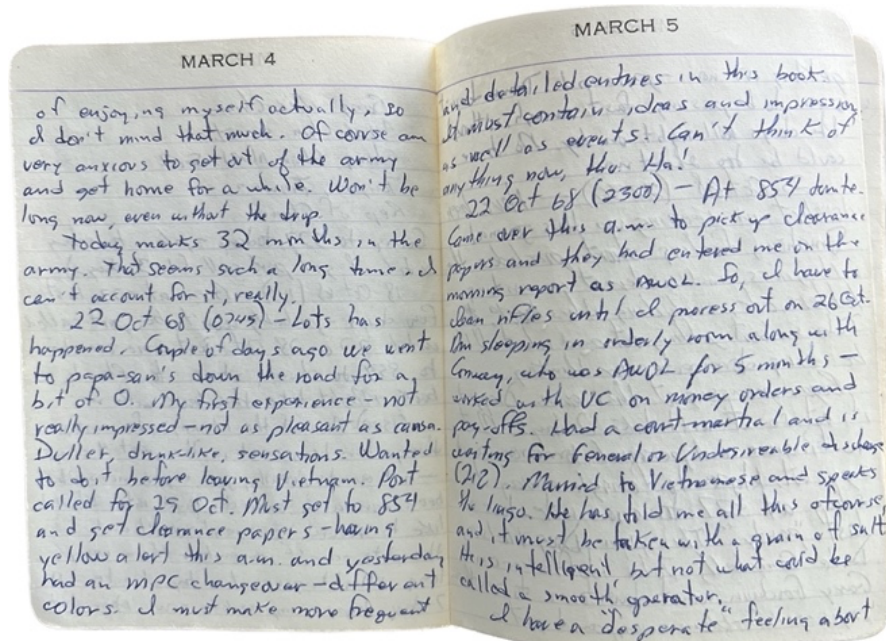 MARCH 4
of enjoying myself actually, so
I don't mind that much. Of course am
very anxious to get out of the army
and get home for a while. Won't be
long now, even without the drop.
Today marks 32 months in the
army. That seems such a long time. I
can't account for it, really.
22 Oct 68 (0745) - Lots has
happened. Couple of days ago we went
to papa-san's down the road for a
bit of O. My first experience - not
really impressed - not as pleasant as
Duller, drunk-like, sensations. Wanted
to do it before leaving Vietnam. Port
called for 29 Oct. Must get to 854
and get clearance papers - having
yellow alert this a.m. and yesterday
had an MPC changeover - different
colors. I must make more frequent
MARCH 5
and detailed entries in this book.
It must contain ideas and impressions
as well as events. Can't think of
anything now, tho. Ha!
22 Oct 68 (2300) - At 854 
Came over this a.m. to pick up clearance
papers and they had entered me on the
morning report as AWOL. So, I have to
clean rifles until I process out on 26 Oct.
Am sleeping in orderly room along with
who was AWOL for 5 months -
worked with VC on money orders and
pay-offs. Had a court-martial and is
waiting for General or Undesireable discharge
(212). Married to Vietnamese and speaks
the lingo. He has told me all this of course
and it must be taken with a grain of salt
He is intelligent but not what could be
called a "smooth" operator.
I have a "desperate" feeling about